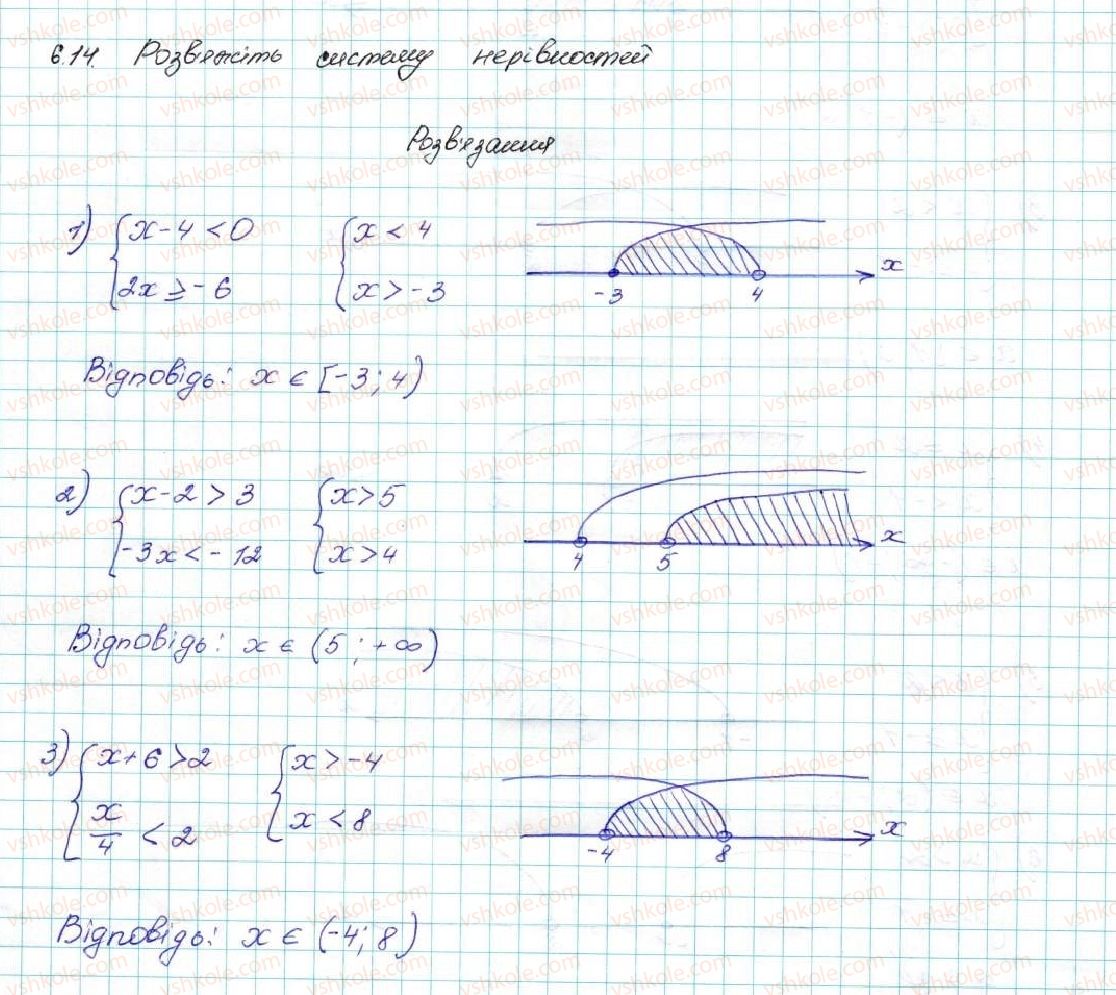 6.14. Розв'яжіть систему нерівностей
Розв'язання
1) { x - 4 < 0 { x < 4
2x ≥ - 6 x > - 3
-3 4 x
Відповідь: x ∈ [-3; 4)
2) { x - 2 > 3 { x > 5
-3x < - 12 x > 4
4 5 x
Відповідь: x ∈ (5; +∞)
3) { x + 6 > 2 { x > -4
x/4 < 2 x < 8
-4 8 x
Відповідь: x ∈ (-4; 8)
vshkole.com